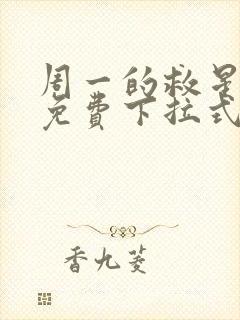 周一的救星
免费下拉式
香九菱